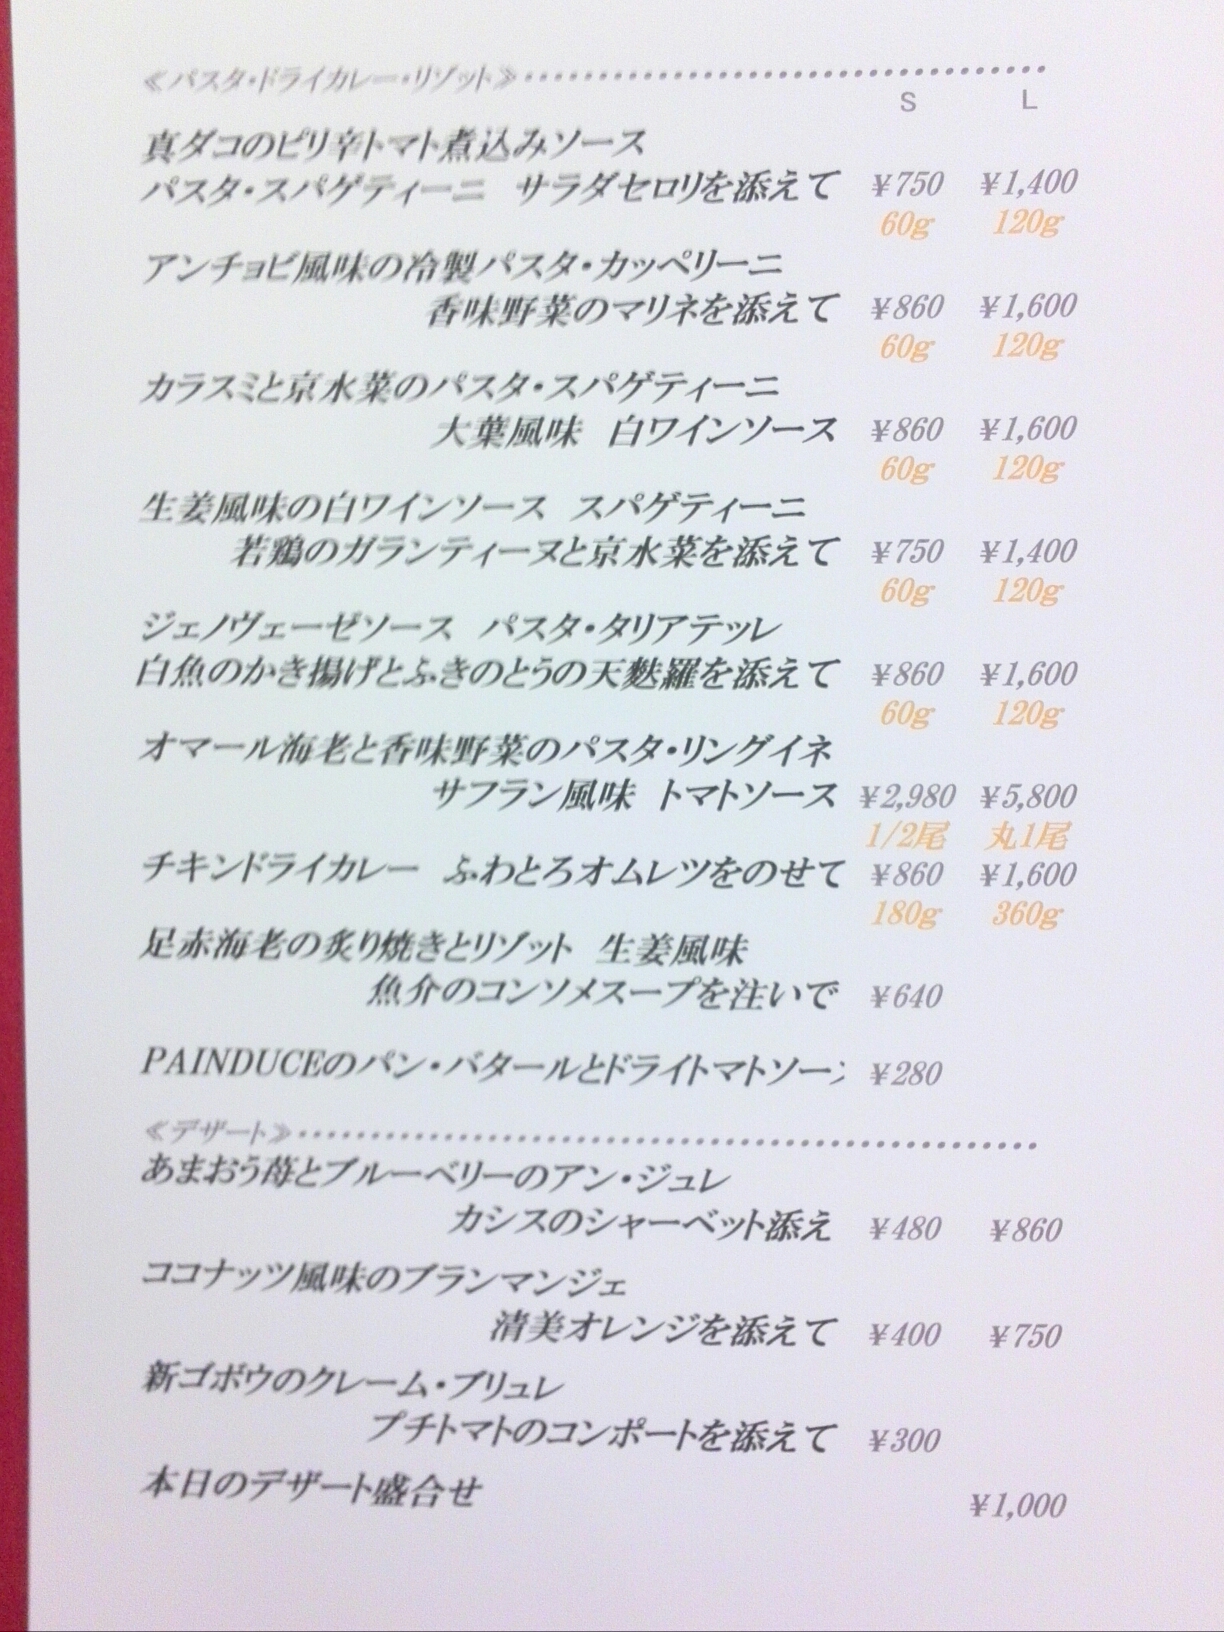 ≪パスタ・ドライカレー・リゾット≫
S L
真ダコのピリ辛トマト煮込みソース
パスタ・スパゲティーニ サラダセロリを添えて ¥750 ¥1,400
60g 120g
アンチョビ風味の冷製パスタ・カッペリーニ
香味野菜のマリネを添えて ¥860 ¥1,600
60g 120g
カラスミと京水菜のパスタ・スパゲティーニ
大葉風味 白ワインソース ¥860 ¥1,600
60g 120g
生姜風味の白ワインソース スパゲティーニ
若鶏のガランティーヌと京水菜を添えて ¥750 ¥1,400
60g 120g
ジェノヴェーゼソース パスタ・タリアテッレ
白魚のかき揚げとふきのとうの天麩羅を添えて ¥860 ¥1,600
60g 120g
オマール海老と香味野菜のパスタ・リングイネ
サフラン風味 トマトソース ¥2,980 ¥5,800
1/2尾 丸1尾
チキンドライカレー ふわとろオムレツをのせて ¥860 ¥1,600
180g 360g
足赤海老の炙り焼きとリゾット 生姜風味
魚介のコンソメスープを注いで ¥640
PAINDUCEのパン・バタールとドライトマトソー ¥280
≪デザート≫
あまおう苺とブルーベリーのアン・ジュレ
カシスのシャーベット添え ¥480 ¥860
ココナッツ風味のブランマンジェ
清美オレンジを添えて ¥400 ¥750
新ゴボウのクレーム・ブリュレ
プチトマトのコンポートを添えて ¥300
本日のデザート盛合せ
¥1,000